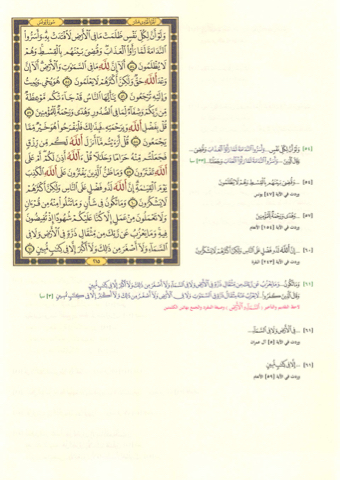 الجزء الحادي عشر سورة يونس
وَلَوْ أَنَّ لِكُلِّ نَفْسٍ ظَلَمَتْ مَا فِي ٱلْأَرْضِ لَٱفْتَدَتْ بِهِۦ وَأَسَرُّوا۟
ٱلنَّدَامَةَ لَمَّا رَأَوُا۟ ٱلْعَذَابَ وَقُضِيَ بَيْنَهُم بِٱلْقِسْطِ وَهُمْ
لَا يُظْلَمُونَ ٥٤ أَلَآ إِنَّ لِلَّهِ مَا فِي ٱلسَّمَٰوَٰتِ وَٱلْأَرْضِ أَلَآ إِنَّ
وَعْدَ ٱللَّهِ حَقٌّ وَلَٰكِنَّ أَكْثَرَهُمْ لَا يَعْلَمُونَ ٥٥ هُوَ يُحْيِۦ وَيُمِيتُ
وَإِلَيْهِ تُرْجَعُونَ ٥٦ يَٰٓأَيُّهَا ٱلنَّاسُ قَدْ جَآءَتْكُم مَّوْعِظَةٌ
مِّن رَّبِّكُمْ وَشِفَآءٌ لِّمَا فِي ٱلصُّدُورِ وَهُدًى وَرَحْمَةٌ لِّلْمُؤْمِنِينَ ٥٧
قُلْ بِفَضْلِ ٱللَّهِ وَبِرَحْمَتِهِۦ فَبِذَٰلِكَ فَلْيَفْرَحُوا۟ هُوَ خَيْرٌ مِّمَّا
يَجْمَعُونَ ٥٨ قُلْ أَرَءَيْتُم مَّآ أَنزَلَ ٱللَّهُ لَكُم مِّن رِّزْقٍ
فَجَعَلْتُم مِّنْهُ حَرَامًا وَحَلَٰلًا قُلْ ءَآللَّهُ أَذِنَ لَكُمْ أَمْ عَلَى
ٱللَّهِ تَفْتَرُونَ ٥٩ وَمَا ظَنُّ ٱلَّذِينَ يَفْتَرُونَ عَلَى ٱللَّهِ ٱلْكَذِبَ
يَوْمَ ٱلْقِيَٰمَةِ إِنَّ ٱللَّهَ لَذُو فَضْلٍ عَلَى ٱلنَّاسِ وَلَٰكِنَّ أَكْثَرَهُمْ
لَا يَشْكُرُونَ ٦٠ وَمَا تَكُونُ فِي شَأْنٍ وَمَا تَتْلُوا۟ مِنْهُ مِن قُرْءَانٍ
وَلَا تَعْمَلُونَ مِنْ عَمَلٍ إِلَّا كُنَّا عَلَيْكُمْ شُهُودًا إِذْ تُفِيضُونَ
فِيهِ وَمَا يَعْزُبُ عَن رَّبِّكَ مِن مِّثْقَالِ ذَرَّةٍ فِي ٱلْأَرْضِ وَلَا فِي
ٱلسَّمَآءِ وَلَآ أَصْغَرَ مِن ذَٰلِكَ وَلَآ أَكْبَرَ إِلَّا فِي كِتَٰبٍ مُّبِينٍ ٦١
٢١٥
وَقَالَ ٱلَّذِينَ
...وَقُضِيَ بَيْنَهُم بِٱلْقِسْطِ وَهُمْ لَا يُظْلَمُونَ
...وَهُدًى وَرَحْمَةٌ لِّلْمُؤْمِنِينَ
...إِنَّ ٱللَّهَ لَذُو فَضْلٍ عَلَى ٱلنَّاسِ وَلَٰكِنَّ أَكْثَرَهُمْ لَا يَشْكُرُونَ
وردت في الآية [٢٤٣] البقرة
وَمَا تَكُونُ ...وَمَا يَعْزُبُ عَن رَّبِّكَ مِن مِّثْقَالِ ذَرَّةٍ فِي ٱلْأَرْضِ وَلَا فِي ٱلسَّمَآءِ وَلَآ أَصْغَرَ مِن ذَٰلِكَ وَلَآ أَكْبَرَ إِلَّا فِي كِتَٰبٍ مُّبِينٍ
[٣] سبأ
...فِي ٱلْأَرْضِ وَلَا فِي ٱلسَّمَآءِ...
وردت في الآية [٥] آل عمران
...إِلَّا فِي كِتَٰبٍ مُّبِينٍ
وردت في الآية [٥٩] الأنعام